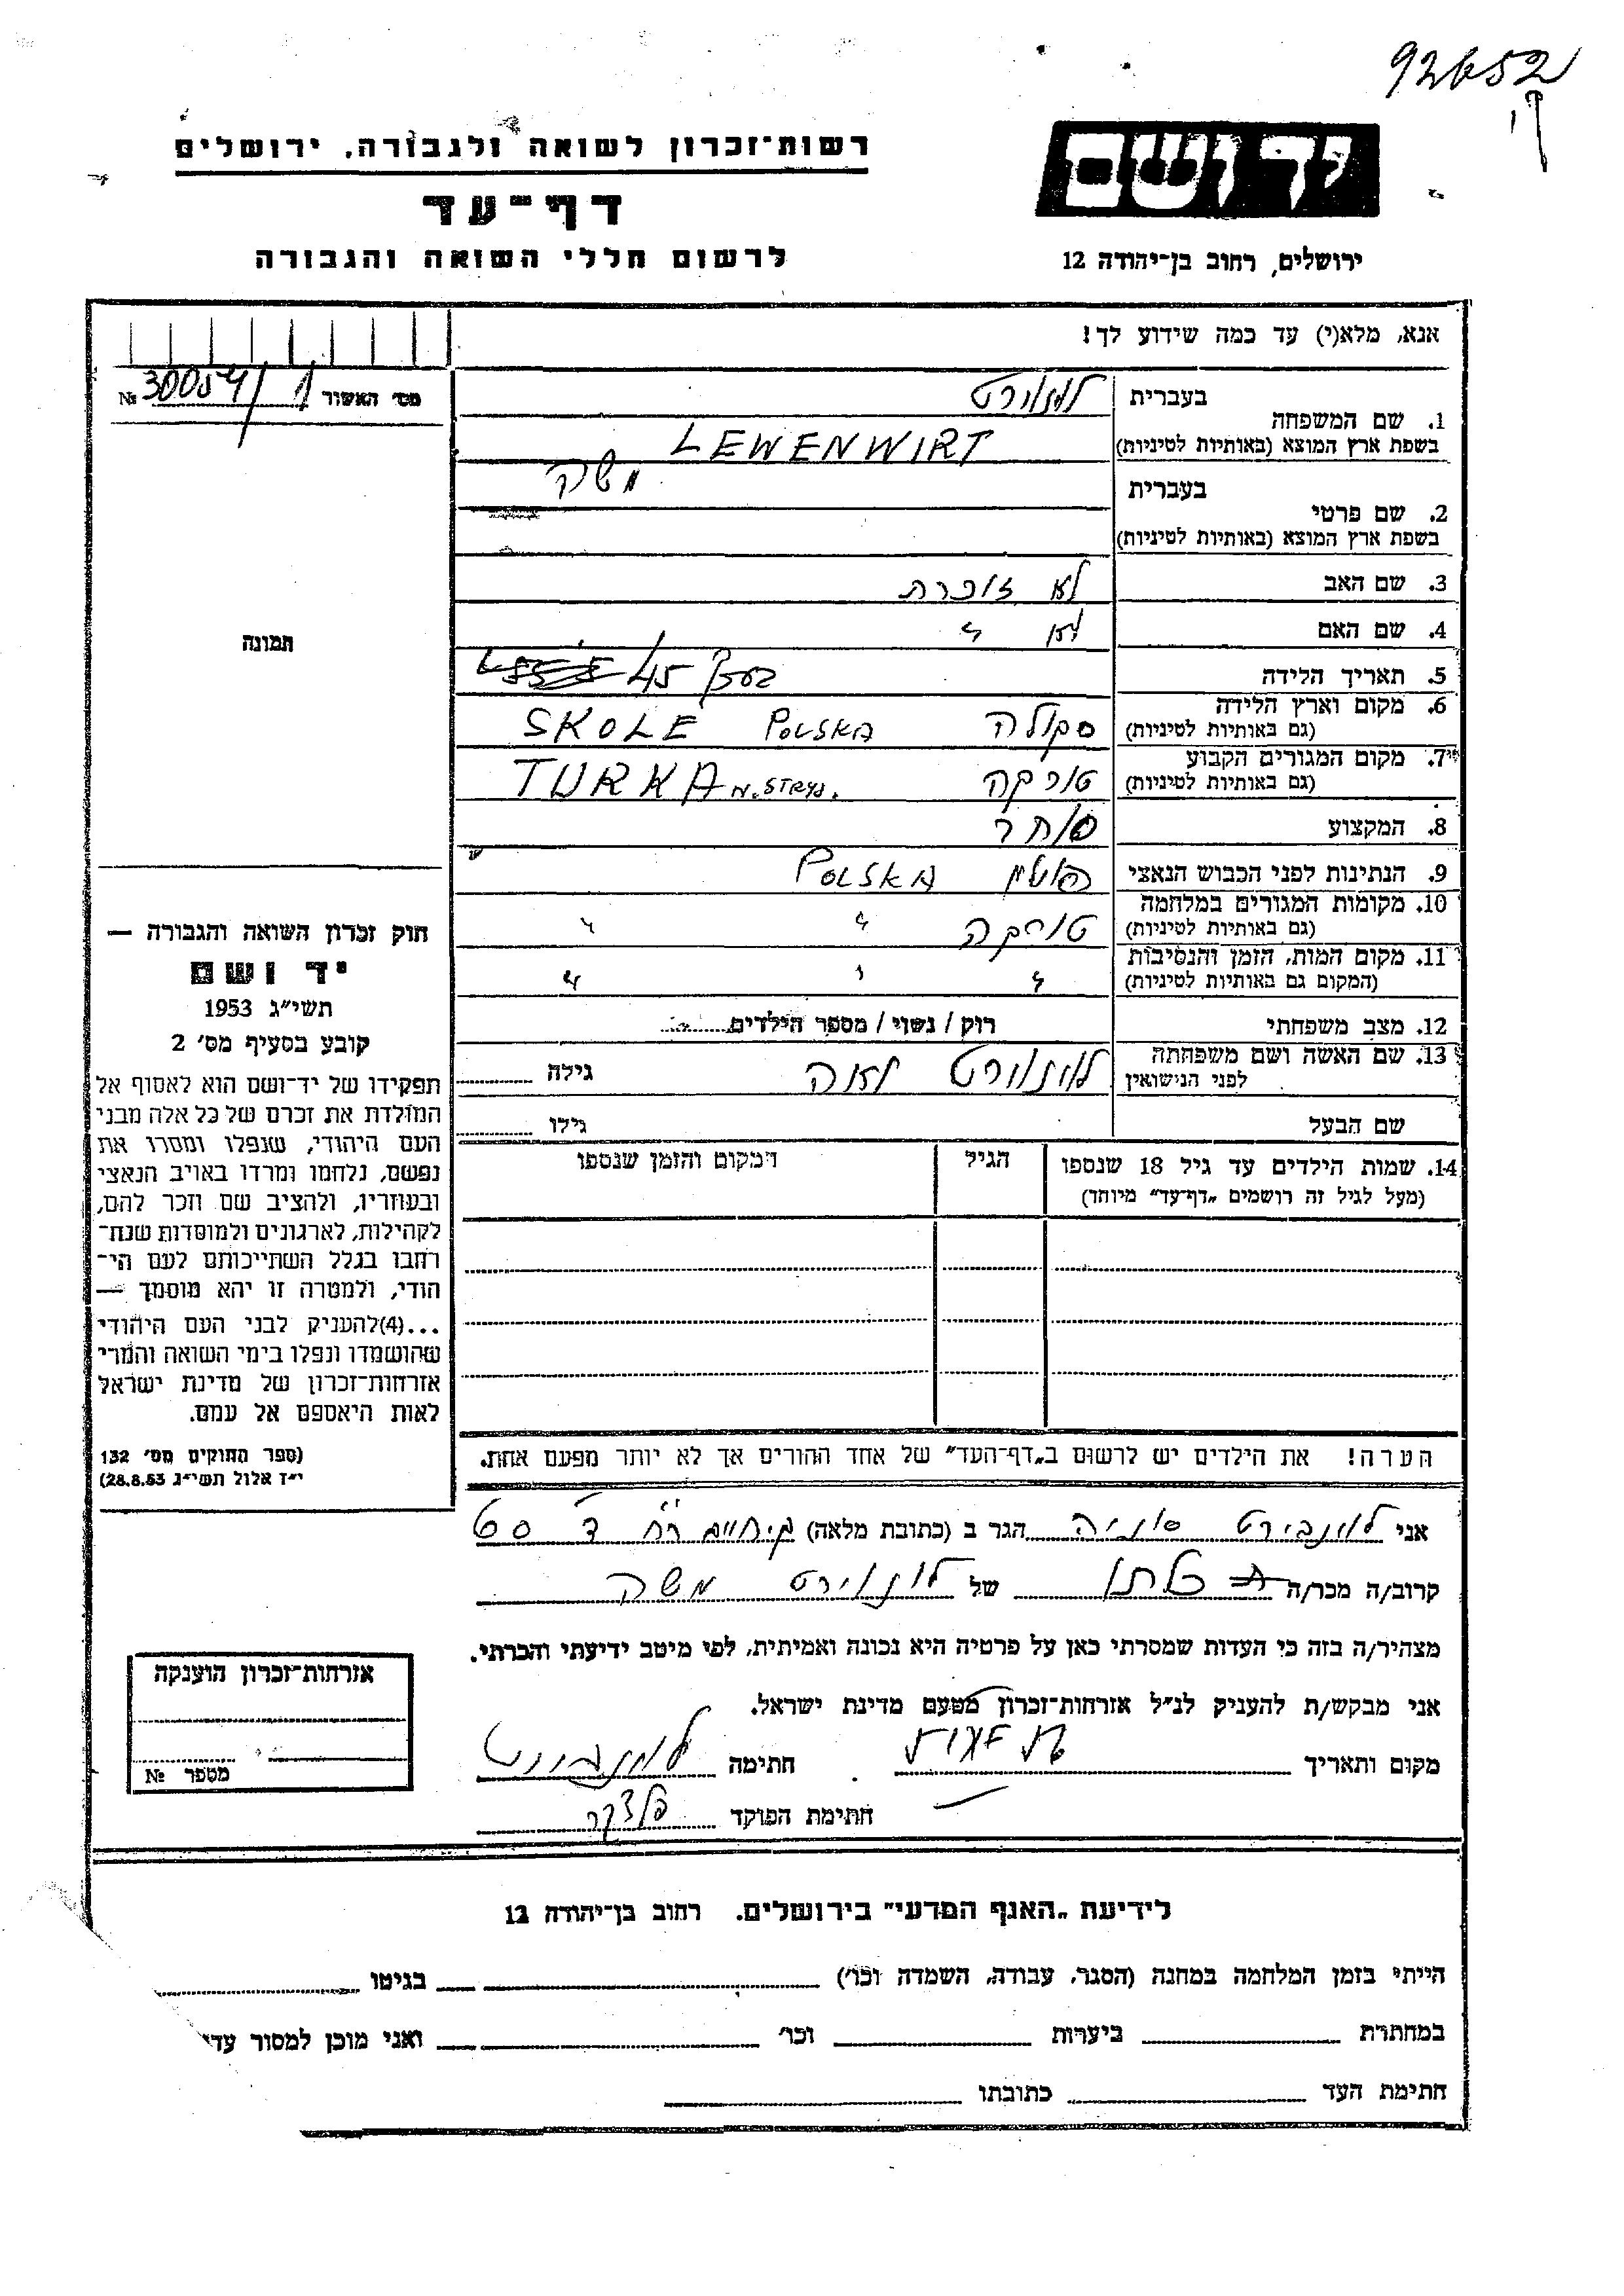 92652
רשות־זכרון לשואה ולגבורה, ירושלים
דף־עד
לרשום חללי השואה והגבורה
יד ושם
ירושלים, רחוב בן־יהודה 12
אנא, מלא(י) עד כמה שידוע לך!
מס׳ האשור 30054/1 №
תמונה
1. שם המשפחה
בעברית
בשפת ארץ המוצא (באותיות לטיניות) LEWENWIRT
2. שם פרטי
בעברית משה
בשפת ארץ המוצא (באותיות לטיניות)
3. שם האב לא זוכרת
4. שם האם לא "
5. תאריך הלידה 45
6. מקום וארץ הלידה
(גם באותיות לטיניות) סקולה POLSKA SKOLE
7. מקום המגורים הקבוע
(גם באותיות לטיניות) טורקה TURKA N. STRYJ.
8. המקצוע סוחר
9. הנתינות לפני הכבוש הנאצי פולין POLSKA
10. מקומות המגורים במלחמה
(גם באותיות לטיניות) טורקה " "
11. מקום המות, הזמן והנסיבות
(המקום גם באותיות לטיניות) " " "
12. מצב משפחתי רוק / נשוי / מספר הילדים
13. שם האשה ושם משפחתה
לפני הנישואין לונוירט גילה
שם הבעל גילו
14. שמות הילדים עד גיל 18 שנספו
(מעל לגיל זה רושמים „דף־עד" מיוחד)
הגיל
המקום והזמן שנספו
הערה! את הילדים יש לרשום ב„דף־העד" של אחד ההורים אך לא יותר מפעם אחת.
חוק זכרון השואה והגבורה —
יד ושם
תשי״ג 1953
קובע בסעיף מס׳ 2
תפקידו של יד־ושם הוא לאסוף אל
המולדת את זכרם של כל אלה מבני
העם היהודי, שנפלו ומסרו את
נפשם, נלחמו ומרדו באויב הנאצי
ובעוזריו, ולהציב שם וזכר להם,
לקהילות, לארגונים ולמוסדות שנח־
רבו בגלל השתייכותם לעם הי־
הודי, ולמטרה זו יהא מוסמך —
...(4)להעניק לבני העם היהודי
שהושמדו ונפלו בימי השואה והמרי
אזרחות־זכרון של מדינת ישראל
לאות היאספם אל עמם.
(ספר החוקים מס׳ 132
י״ז אלול תשי״ג 28.8.53)
אני לונבירט סוניה הגר ב (כתובת מלאה)
קרוב/ה מכר/ה של לונוירט משה
מצהיר/ה בזה כי העדות שמסרתי כאן על פרטיה היא נכונה ואמיתית, לפי מיטב ידיעתי והכרתי.
אני מבקש/ת להעניק לנ״ל אזרחות־זכרון מטעם מדינת ישראל.
מקום ותאריך חתימה
חתימת הפוקד
אזרחות־זכרון הוענקה
מספר №
לידיעת „האגף המדעי" בירושלים. רחוב בן־יהודה 12
הייתי בזמן המלחמה במחנה (הסגר, עבודה, השמדה וכו׳) בגיטו
במחתרת ביערות וכו׳ ואני מוכן למסור עדי
חתימת העד כתובתו